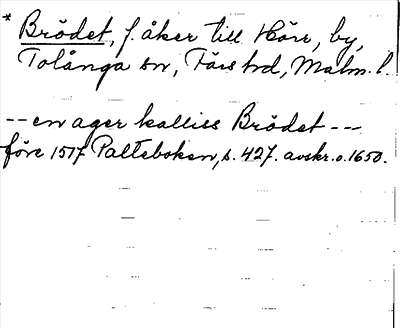 * Brödet, f. åker till Hörr, by,
Tolånga sn, Färs hd, Malm. l.
-- en ager kalliss Brödet ---
före 1517 Palteboken, s. 427. avskr. o. 1650.